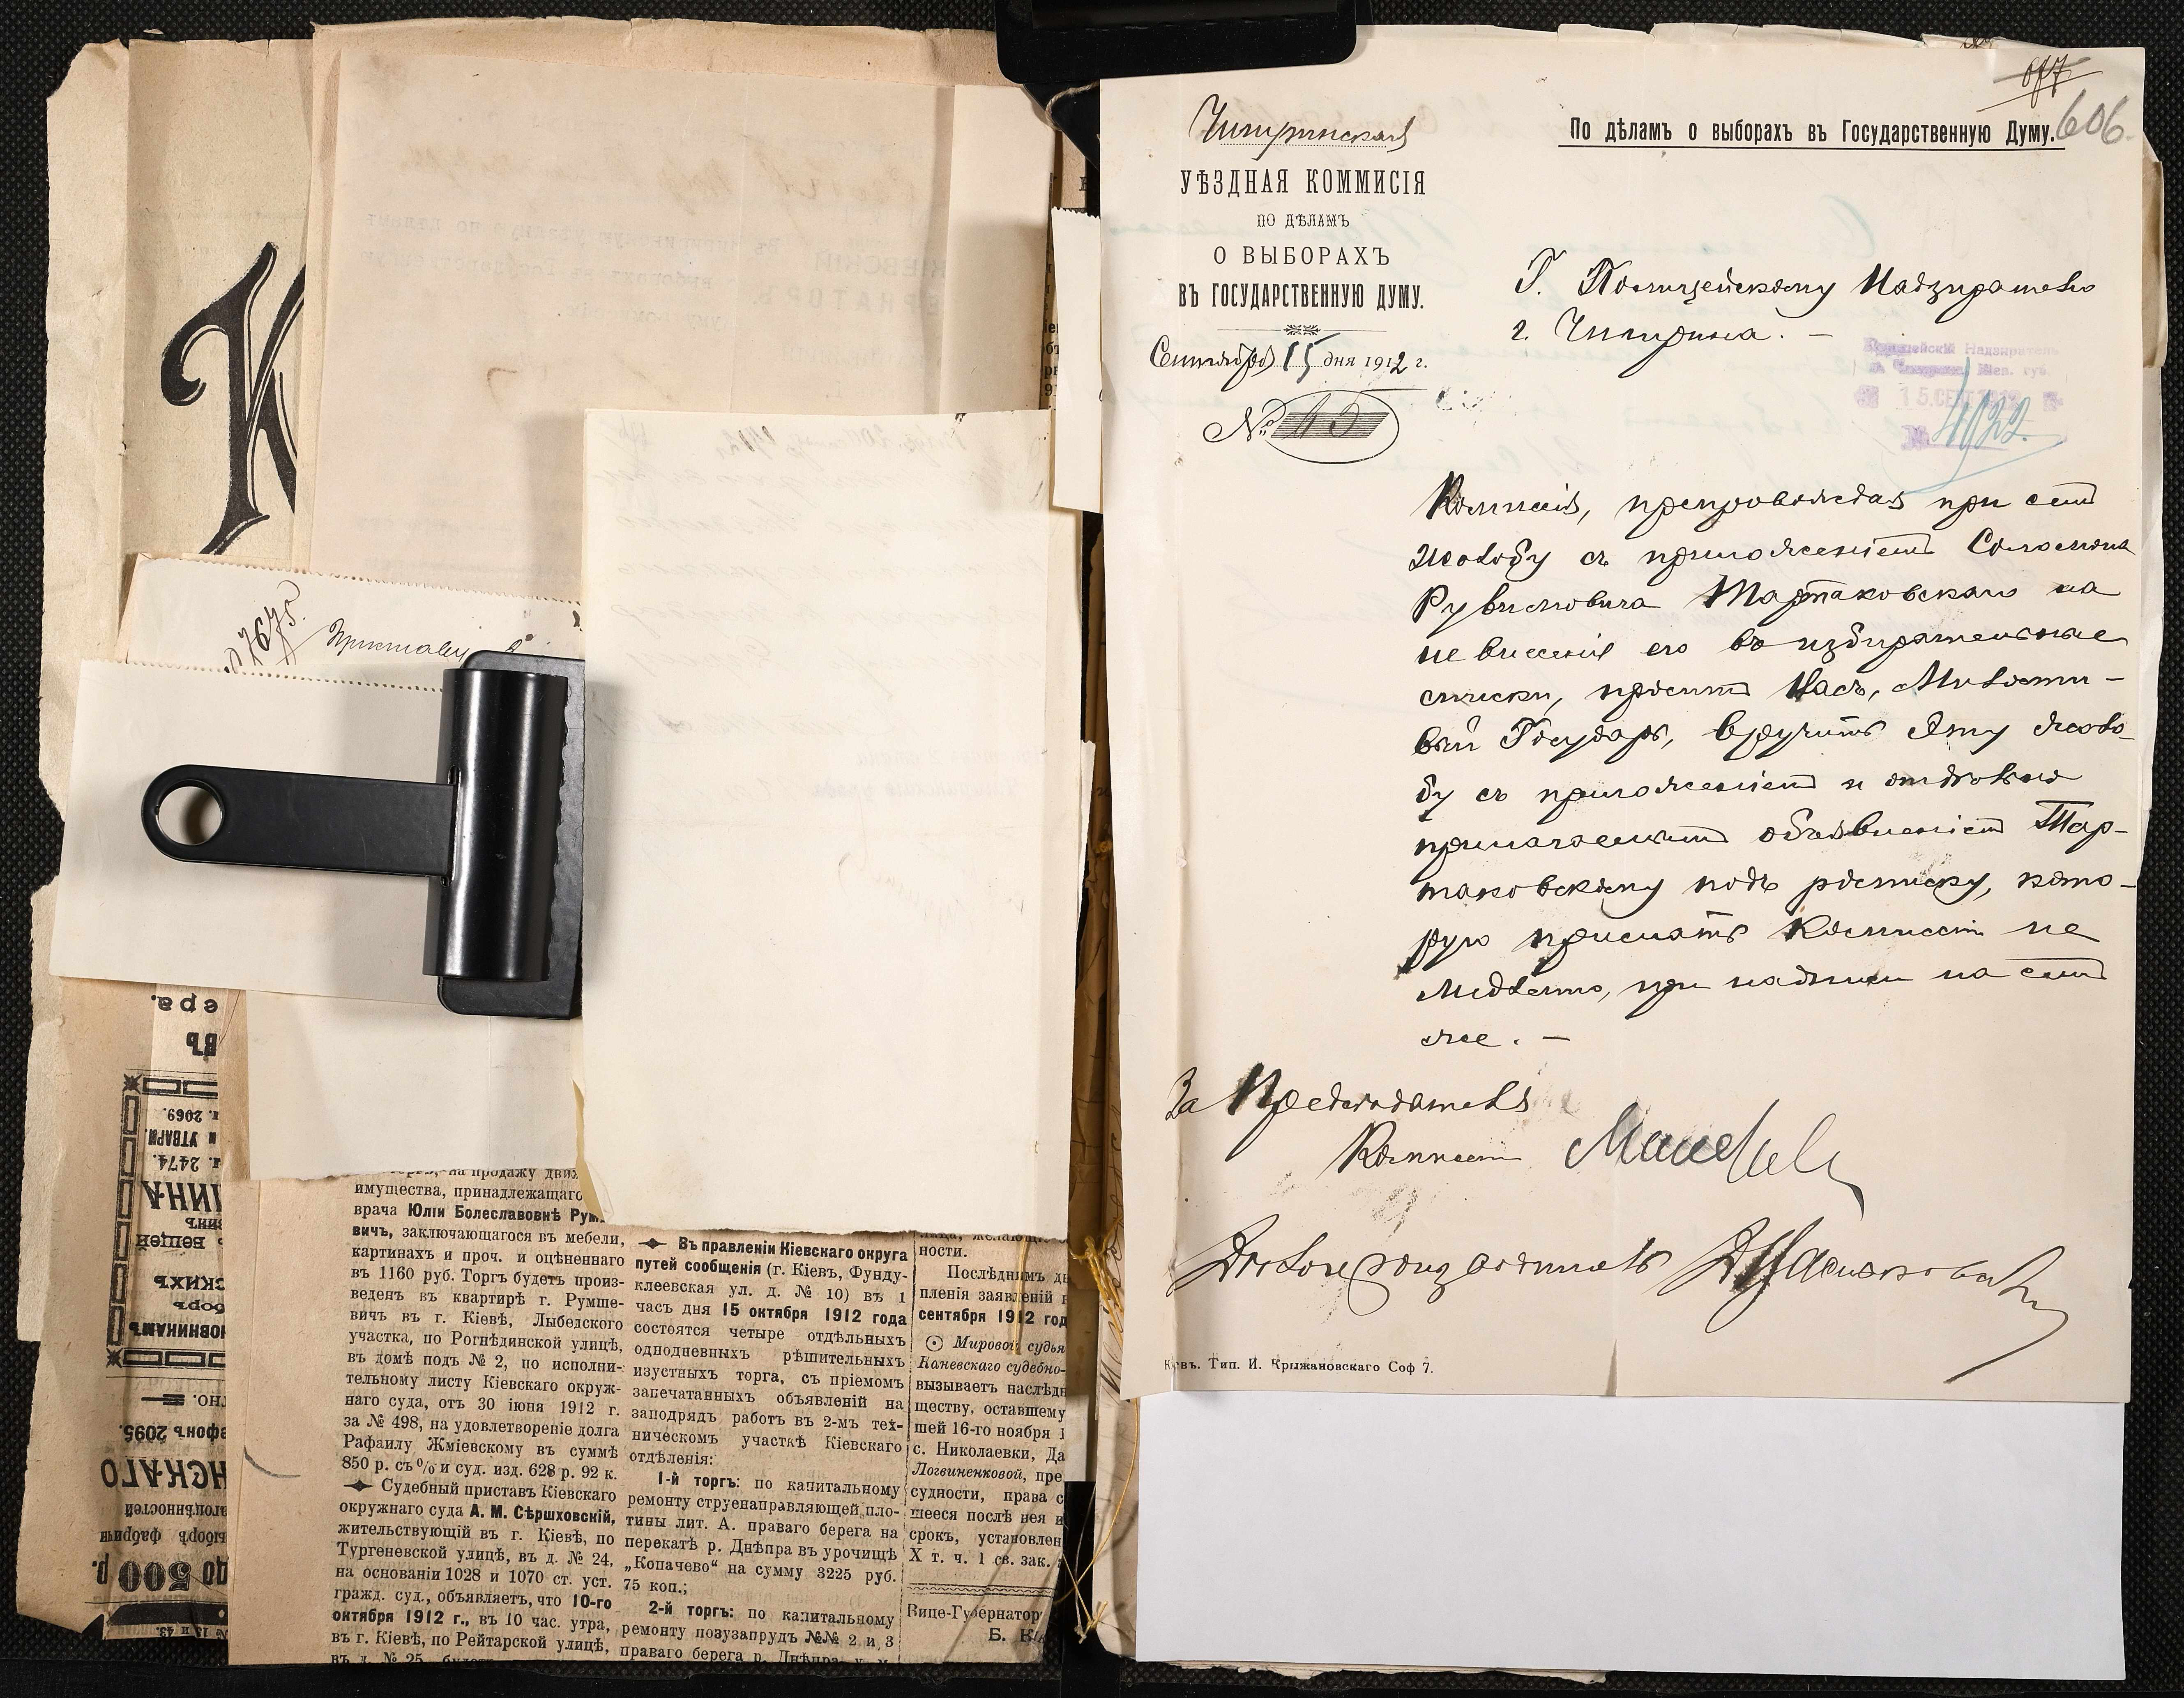 К
17675.
Приставу
торгъ, на продажу движ
имущества, принадлежащаго
врача Юліи Болеславовнѣ Рум
вичъ, заключающагося въ мебели,
картинахъ и проч. и оцѣненнаго
въ 1160 руб. Торгъ будетъ произ-
веденъ въ квартирѣ г. Румше-
вичъ въ г. Кіевѣ, Лыбедского
участка, по Рогнѣдинской улицѣ,
въ домѣ подъ № 2, по исполни-
тельному листу Кіевскаго окруж-
наго суда, отъ 30 іюня 1912 г.
за № 498, на удовлетвореніе долга
Рафаилу Жміевскому въ суммѣ
850 р. съ % и суд. изд. 628 р. 92 к.
Судебный приставъ Кіевскаго
окружнаго суда А. М. Сѣршховскій,
жительствующій въ г. Кіевѣ, по
Тургеневской улицѣ, въ д. № 24,
на основаніи 1028 и 1070 ст. уст.
гражд. суд., объявляетъ, что 10-го
октября 1912 г., въ 10 час. утра,
въ г. Кіевѣ, по Рейтарской улицѣ,
въ д. № 25, будетъ
Въ правленіи Кіевскаго округа
путей сообщенія (г. Кіевъ, Фунду-
клеевская ул. д. № 10) въ 1
часъ дня 15 октября 1912 года
состоятся четыре отдѣльныхъ
однодневныхъ рѣшительныхъ
изустныхъ торга, съ пріемомъ
запечатанныхъ объявленій на
заподрядъ работъ въ 2-мъ тех-
ническомъ участкѣ Кіевскаго
отдѣленія:
1-й торгъ: по капитальному
ремонту струенаправляющей пло-
тины лит. А. праваго берега на
перекатѣ р. Днѣпра въ урочищѣ
„Копачево“ на сумму 3225 руб.
75 коп.;
2-й торгъ: по капитальному
ремонту позузапрудъ №№ 2 и 3
праваго берега р. Днѣпра
ности.
Послѣднимъ дн
пленія заявленій
сентября 1912 год
Мировой судья
Каневскаго судебно-
вызываетъ наслѣдн
ществу, оставшему
шей 16-го ноября 1
с. Николаевки, Да
Логвиненковой, пре
судности, права с
шееся послѣ нея и
срокъ, установлен
X т. ч. 1 св. зак.
Вице-Губернаторъ
ера.
ВЪ
. 2069.
УТВАРИ.
. 2474.
вещей
СКИХЪ
боръ
НОВНИКАМЪ
фонъ 2095.
НСКАГО
ДО 500 р.
677
606.
Чигиринская
УѢЗДНАЯ КОММИСІЯ
ПО ДѢЛАМЪ
О ВЫБОРАХЪ
ВЪ ГОСУДАРСТВЕННУЮ ДУМУ.
Сентября 15 дня 1912 г.
№ 45
По дѣламъ о выборахъ въ Государственную Думу.
Г. Полицейскому Надзирателю
г. Чигирина. —
Полицейскій Надзиратель
г. Чигирина, Кіев. губ.
15 СЕНТ 1912
№ 4922.
Коммисія, препровождая при семъ
жалобу съ приложеніемъ Соломона
Рувимовича Тартаковскаго на
не внесеніе его въ избирательные
списки, проситъ Васъ, Милости-
вый Государь, вручить эту жало-
бу съ приложеніемъ и отдѣльно
прилагаемымъ объявленіемъ Тар-
таковскому подъ росписку, кото-
рую прислать Коммисіи не
медленно, при надписи на семъ
же. —
За Предсѣдателя
Коммисіи
Дѣлопроизводитель
Кіевъ. Тип. И. Крыжановскаго Соф 7.